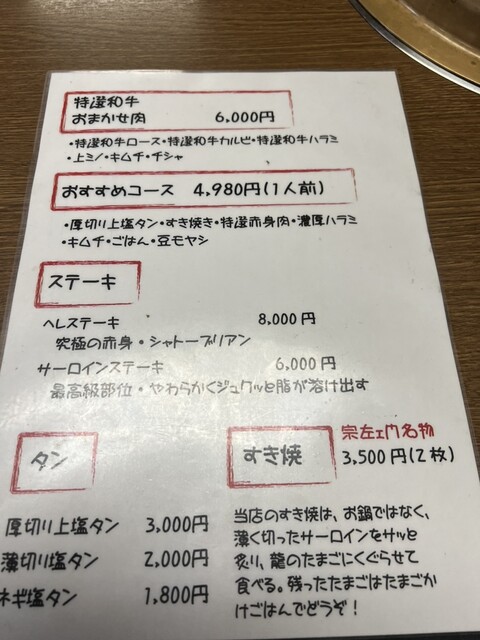 特選和牛
おまかせ肉 6,000円
・特選和牛ロース・特選和牛カルビ・特選和牛ハラミ
・上ミノ・キムチ・チシャ
おすすめコース 4,980円(1人前)
・厚切り上塩タン・すき焼き・特選赤身肉・濃厚ハラミ
・キムチ・ごはん・豆モヤシ
ステーキ
ヘレステーキ 8,000円
究極の赤身・シャトーブリアン
サーロインステーキ 6,000円
最高級部位・やわらかくジュワッと脂が溶け出す
タン
厚切り上塩タン 3,000円
薄切り塩タン 2,000円
ネギ塩タン 1,800円
すき焼
宗左ェ門名物
3,500円(2枚)
当店のすき焼は、お鍋ではなく、
薄く切ったサーロインをサッと
炙り、龍のたまごにくぐらせて
食べる。残ったたまごはたまごか
けごはんでどうぞ!